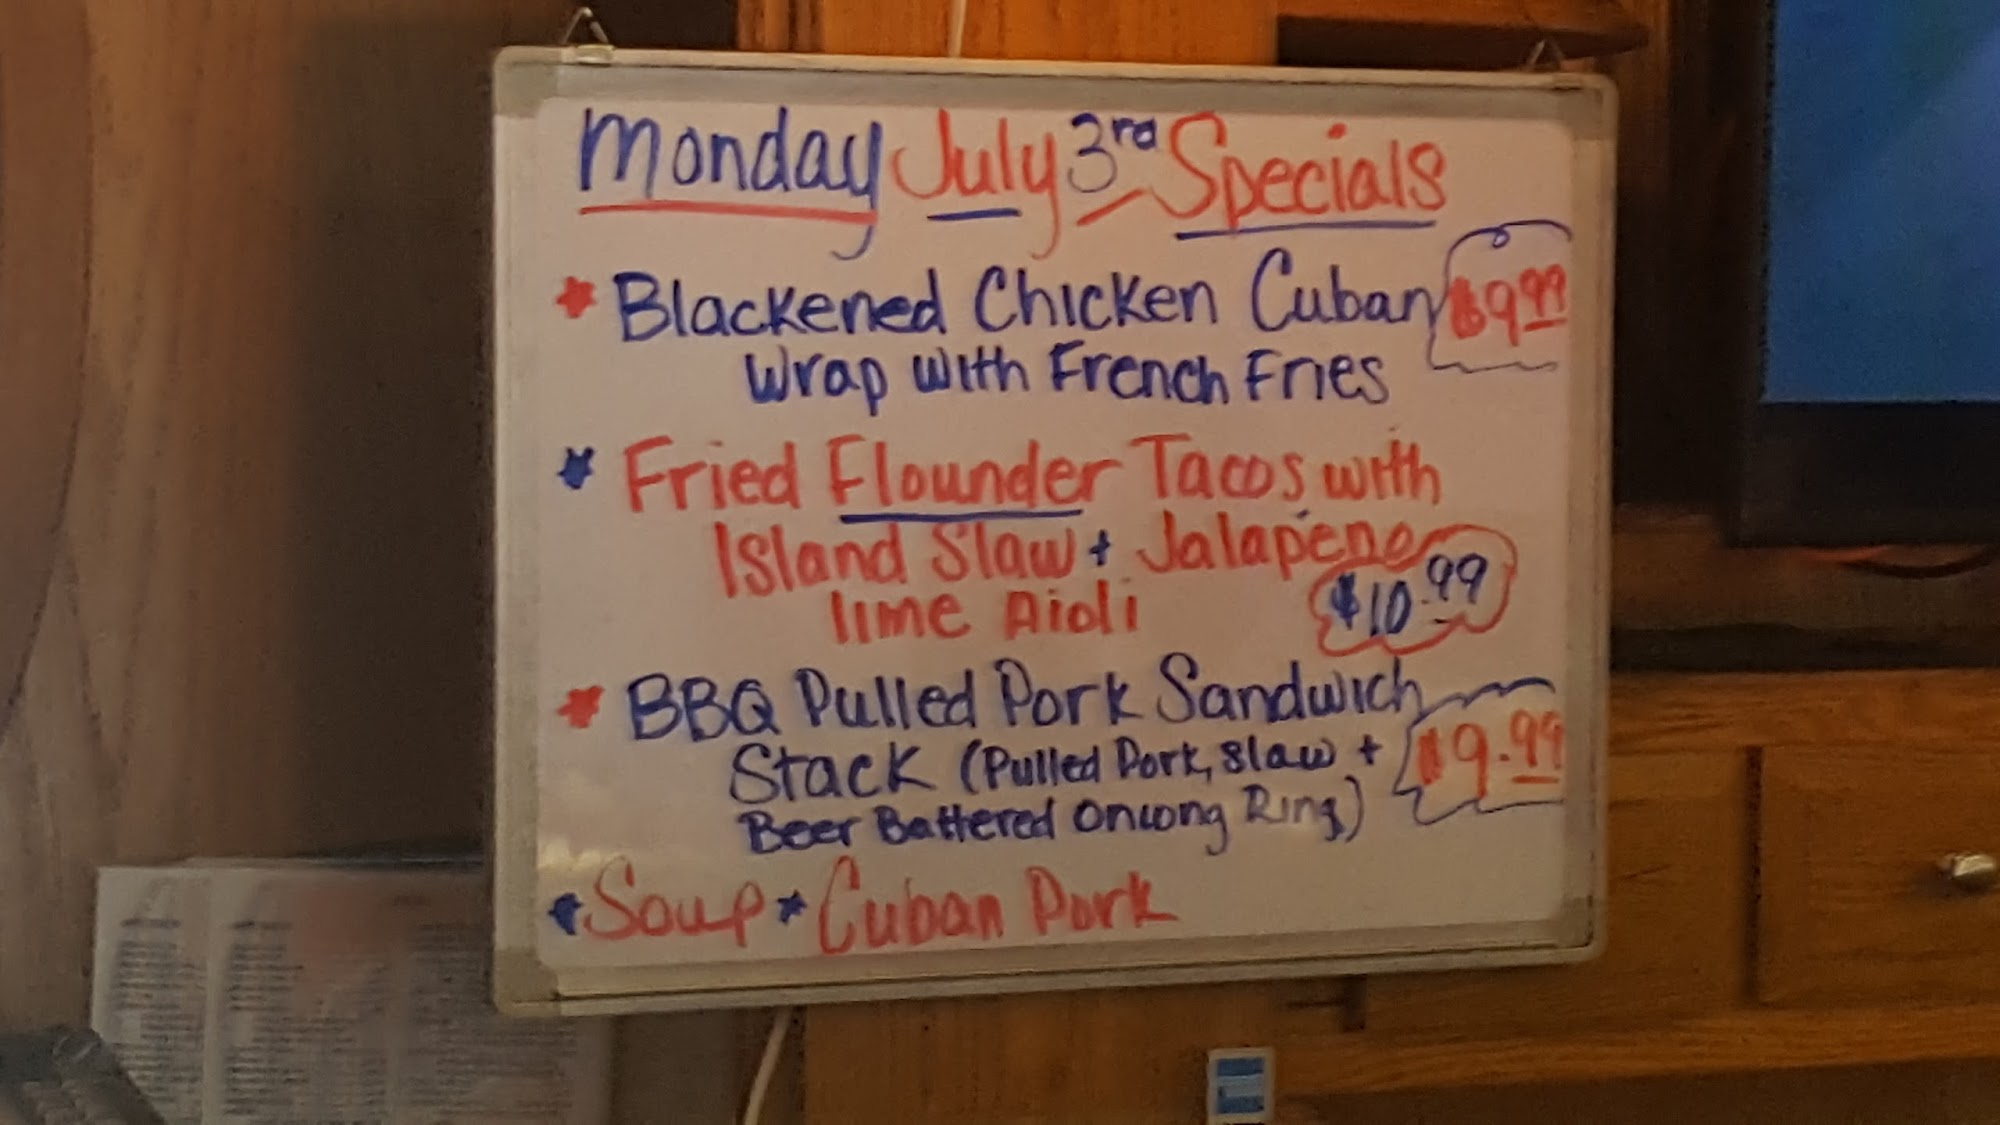 Monday July 3rd Specials
* Blackened Chicken Cuban $9.99
Wrap with French Fries
* Fried Flounder Tacos with
Island Slaw + Jalapeno
lime Aioli $10.99
* BBQ Pulled Pork Sandwich
Stack (Pulled Pork, Slaw + $9.99
Beer Battered Onwong Ring)
* Soup * Cuban Pork